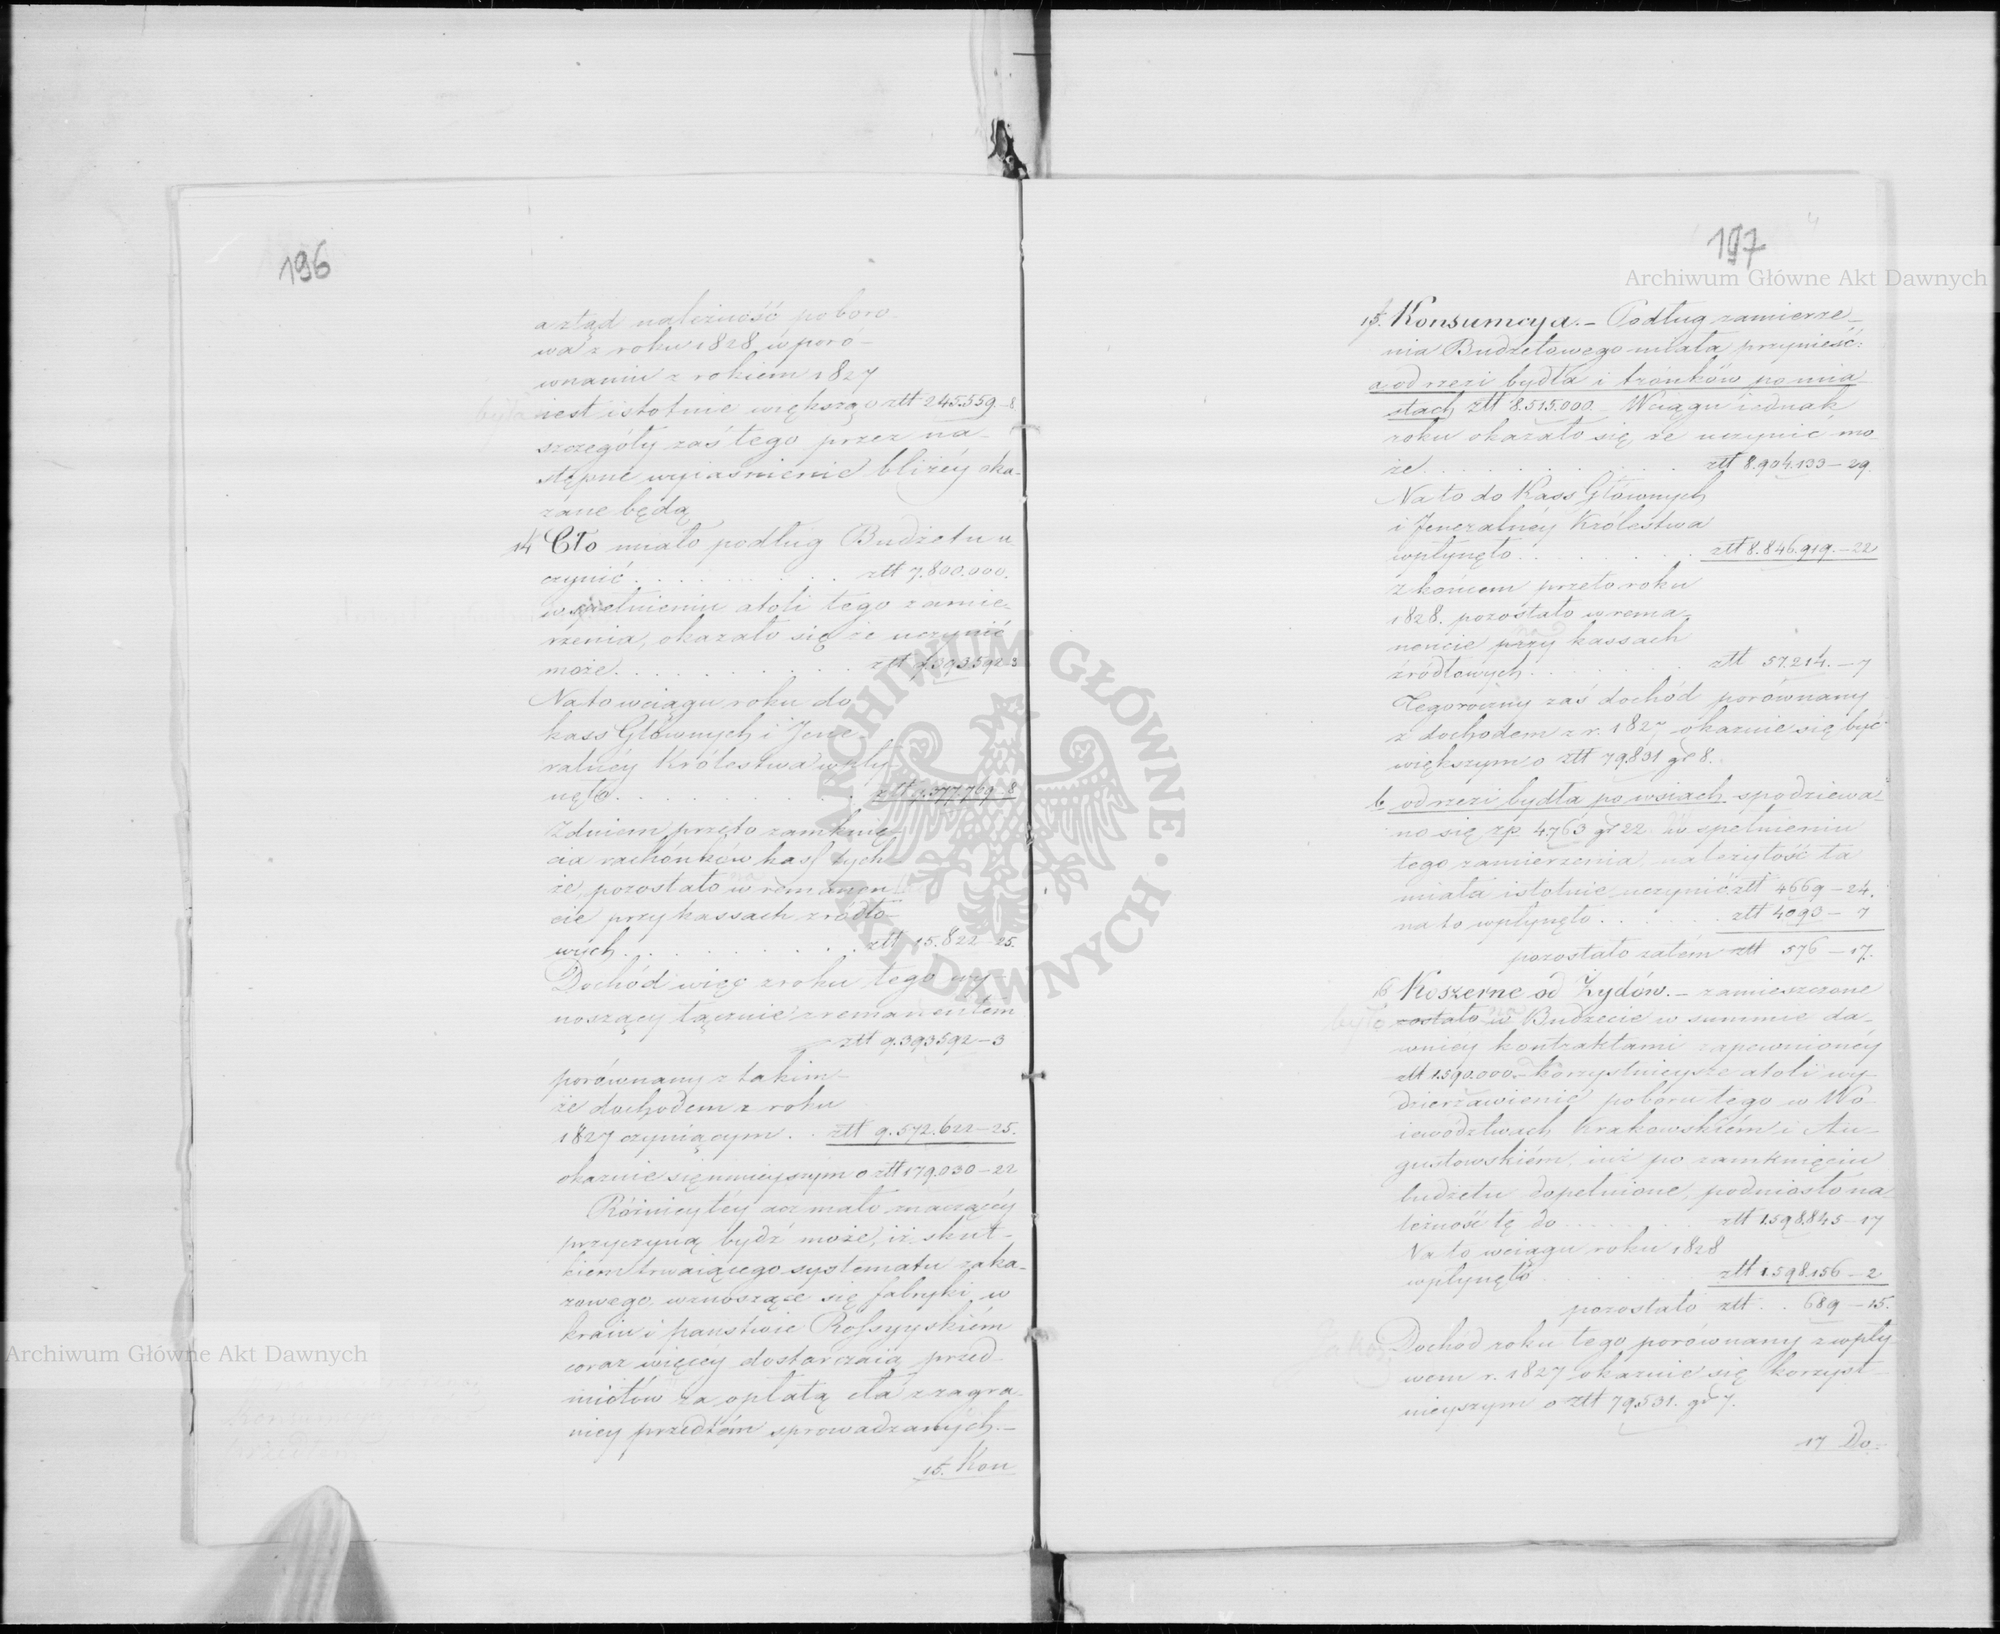 196
a ztąd należność poboro-
wa z roku 1828 w poro-
wnaniu z rokiem 1827
iest istotnie większą o złł 245.559.-8.
szczegóły zaś tego przez na-
stępne wyiaśnienie bliżéy oka-
zane będą
14 Cło miało podług Budżetu u
czynić . . . . . . . . złł 7.800.000.
w spełnieniu atoli tego zamie-
rzenia, okazało się że uczynić
może . . . . . . . . złł 9.393.592-3
Na to w ciągu roku do
kass Głównych i Jene-
ralnéy Królestwa wpły
nęło . . . . . . . . złł 9.377.769-8
Z dniem przeto zamknię-
cia rachónków kass tych-
że, pozostało w remanen-
cie przy kassach źródło-
wych . . . . . . . . złł 15.822-25.
Dochód więc z roku tego wy-
noszący łącznie z remanentem
złł 9.393.592-3
porównany z takim-
że dochodem z roku
1827 czyniącym . . złł 9.572.622-25.
okazuie się mnieyszym o złł 179.030-22
Różnicy téy acz mało znaczącéy
przyczyną bydź może, iż skut-
kiem trwaiącego systematu zaka-
zowego, wznoszące się fabryki w
kraiu i państwie Rossyyskiém
coraz więcéy dostarczaią przed-
miotów za opłatą cła z zagra-
nicy przedtém sprowadzanych.-
15. Kon
197
15. Konsumcya.- Podług zamierze-
nia Budżetowego miała przynieść:
a od rzezi bydła i trónków po mia
stach złł 8.515.000.- W ciągu iednak
roku okazało się że uczynić mo-
że . . . . . . . . złł 8.904.133-29.
Na to do Kass Głównych
i Jeneralnéy Królestwa
wpłynęło . . . . . . złł 8.846.919.-22
z końcem przeto roku
1828. pozostało w rema-
nencie przy kassach
źródłowych . . . . . złł 57.214.-7
Tegoroczny zaś dochód porównany
z dochodem z r. 1827 okazuie się być
większym o złł 79831 gr 8.
b od rzezi bydła po wsiach spodziewa-
no się zp. 4763 gr 22. W spełnieniu
tego zamierzenia, należytość ta
miała istotnie uczynić złł 4669-24.
na to wpłynęło . . . . . złł 4093-7
pozostało zatém złł 576-17.
16 Koszerne od Żydów.- zamieszczone
zostało w Budżecie w summie da-
wniey kontraktami zapewnionéy
złł 1.590.000.- korzystnieysze atoli wy-
dzierżawienie poboru tego w Wo-
iewództwach Krakowskiém i Au-
gustowskiém, iuż po zamknięciu
budżetu dopełnione, podniosło na-
leżność tę do . . . . . złł 1.598.845-17
Na to w ciągu roku 1828
wpłynęło . . . . . złł 1.598.156-2
pozostało złł . . 689-15.
Dochód roku tego porównany z wpły
wem r. 1827 okazuie się korzyst-
nieyszym o złł 79531. gr 7.
17 Do-
Archiwum Główne Akt Dawnych
Archiwum Główne Akt Dawnych
ARCHIWUM GŁÓWNE AKT DAWNYCH